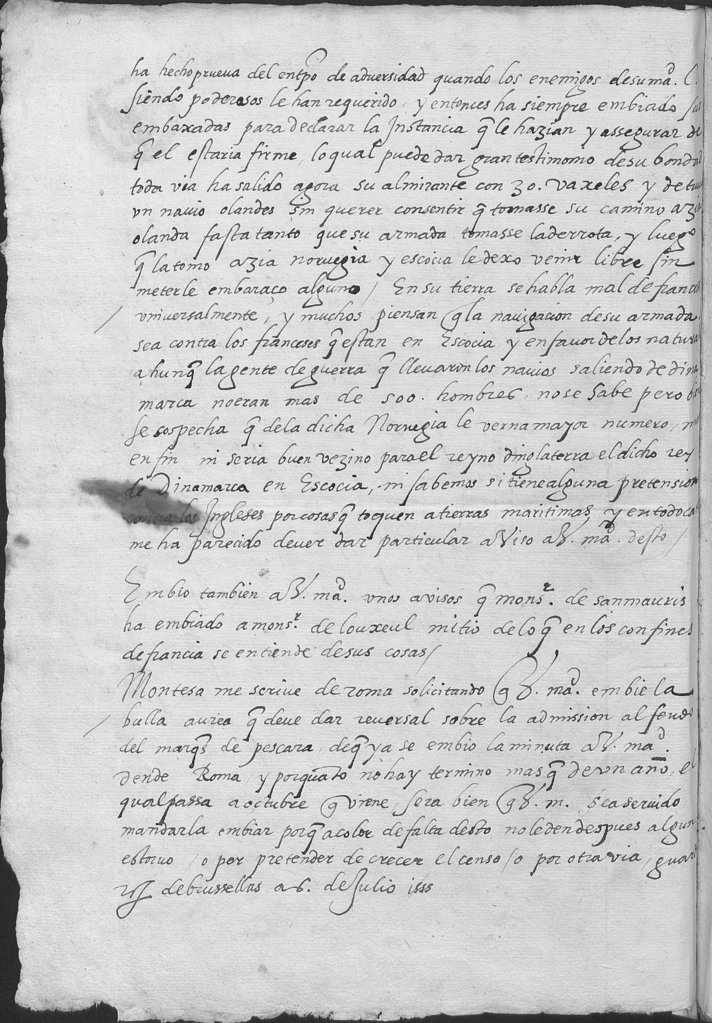 ha hecho prueva del entpo de adversidad quando los enemigos de su mad. C.
siendo poderosos le han requerido, y entonces ha siempre embiado sus
embaxadas para declarar la Instancia q̃ le hazian y assegurar de
q̃ el estaria firme, lo qual puede dar gran testimonio de su bondad
toda via ha salido agora su almirante con 30. vaxeles y detuuo
vn navio olandes sin querer consentir q̃ tomasse su camino azia
olanda fasta tanto que su armada tomasse la derrota, y luego
q̃ la tomo azia norvegia y escocia le dexo venir libre sin
meterle embaraço alguno / En su tierra se habla mal de francia
vniversalmente, y muchos piensan q̃ la navigacion de su armada
sea contra los franceses q̃ estan en Escocia y en favor de los natura
ahunq̃ la gente de guerra q̃ llevaron los navios saliendo de dina
marca no eran mas de 500. hombres, no se sabe pero
se sospecha q̃ de la dicha Norvegia le verna mayor numero,
en fin ni seria buen vezino para el reyno dinglaterra el dicho rey
de Dinamarca en Escocia, ni sabemos si tiene alguna pretension
contra los Ingleses por cosas q̃ toquen a tierras maritimas, y en todo ca
me ha parecido dever dar particular aviso a V. mad. desto /
Embio tambien a V. mad. vnos avisos q̃ monsr. de sanmauris
ha embiado a monsr. de louxeul mi tio de lo q̃ en los confines
de francia se entiende de sus cosas /
Montesa me scrive de roma solicitando q̃ V. mad. embie la
bulla aurea q̃ deve dar reversal sobre la admission al feudo
del marqs de pescara, de q̃ ya se embio la minuta a V. mad.
dende Roma, y porquanto no hay termino mas q̃ de vn año, el
qual passa a octubre q̃ viene, sera bien q̃ V. m. sea servido
mandarla embiar porq̃ a color de falta desto no le den despues algun
estorvo / o por pretender de crecer el censo / o por otra via, guar
de brussellas a 6. de Julio 1555